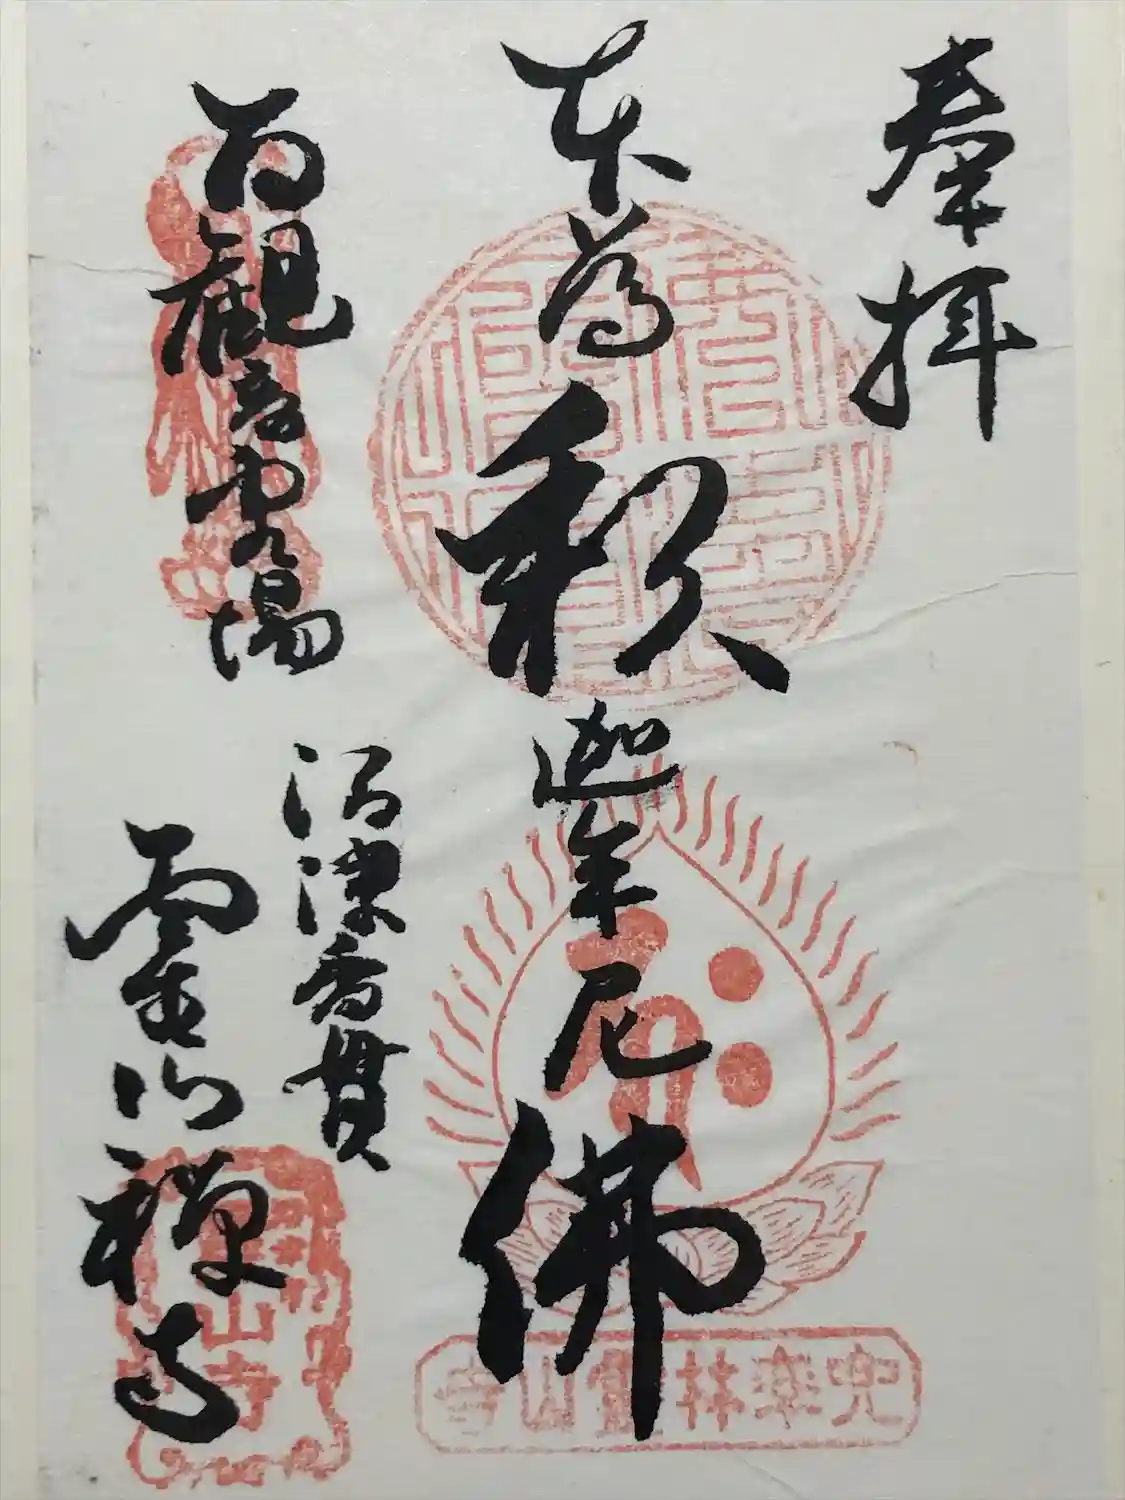 奉拝
本尊釈迦牟尼佛
兜率林靈山寺
百観音霊場
沼津香貫
霊山禅寺